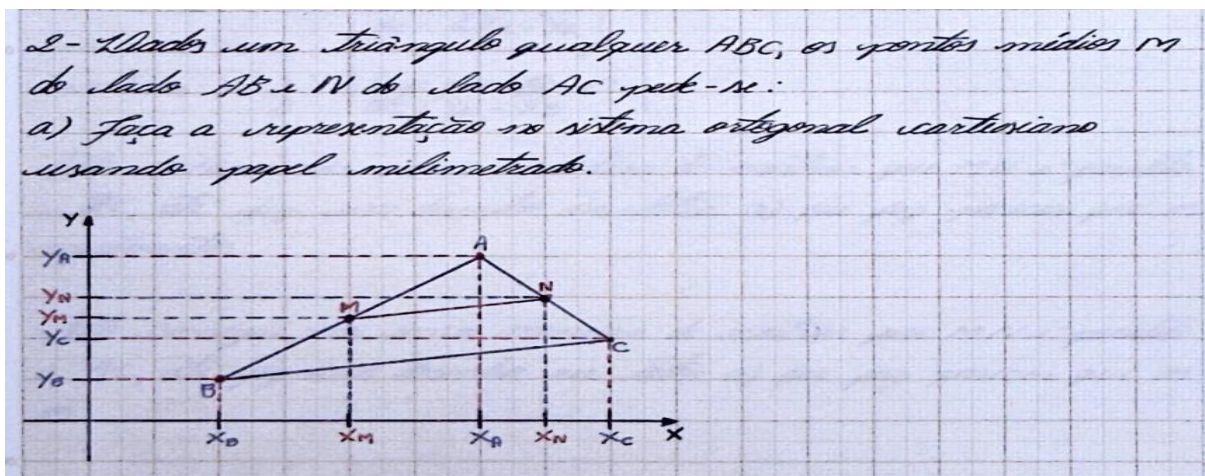 2- Dados um triângulo qualquer ABC, os pontos médios M
do lado AB e N do lado AC pede-se:
a) Faça a representação no sistema ortogonal cartesiano
usando papel milimetrado.
Y
YA
A
YN
N
YM
M
YC
C
YB
B
XB
XM
XA
XN
XC
X